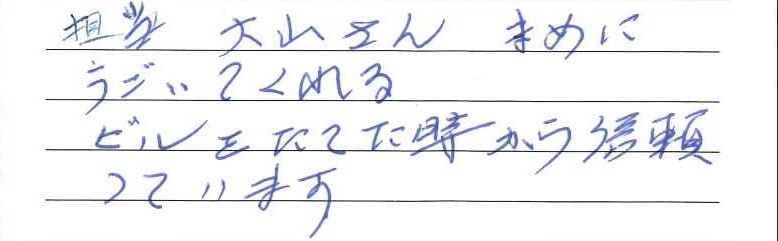 担当 大山さん まめに
うごいてくれる
ビルをたてた時から信頼
しています